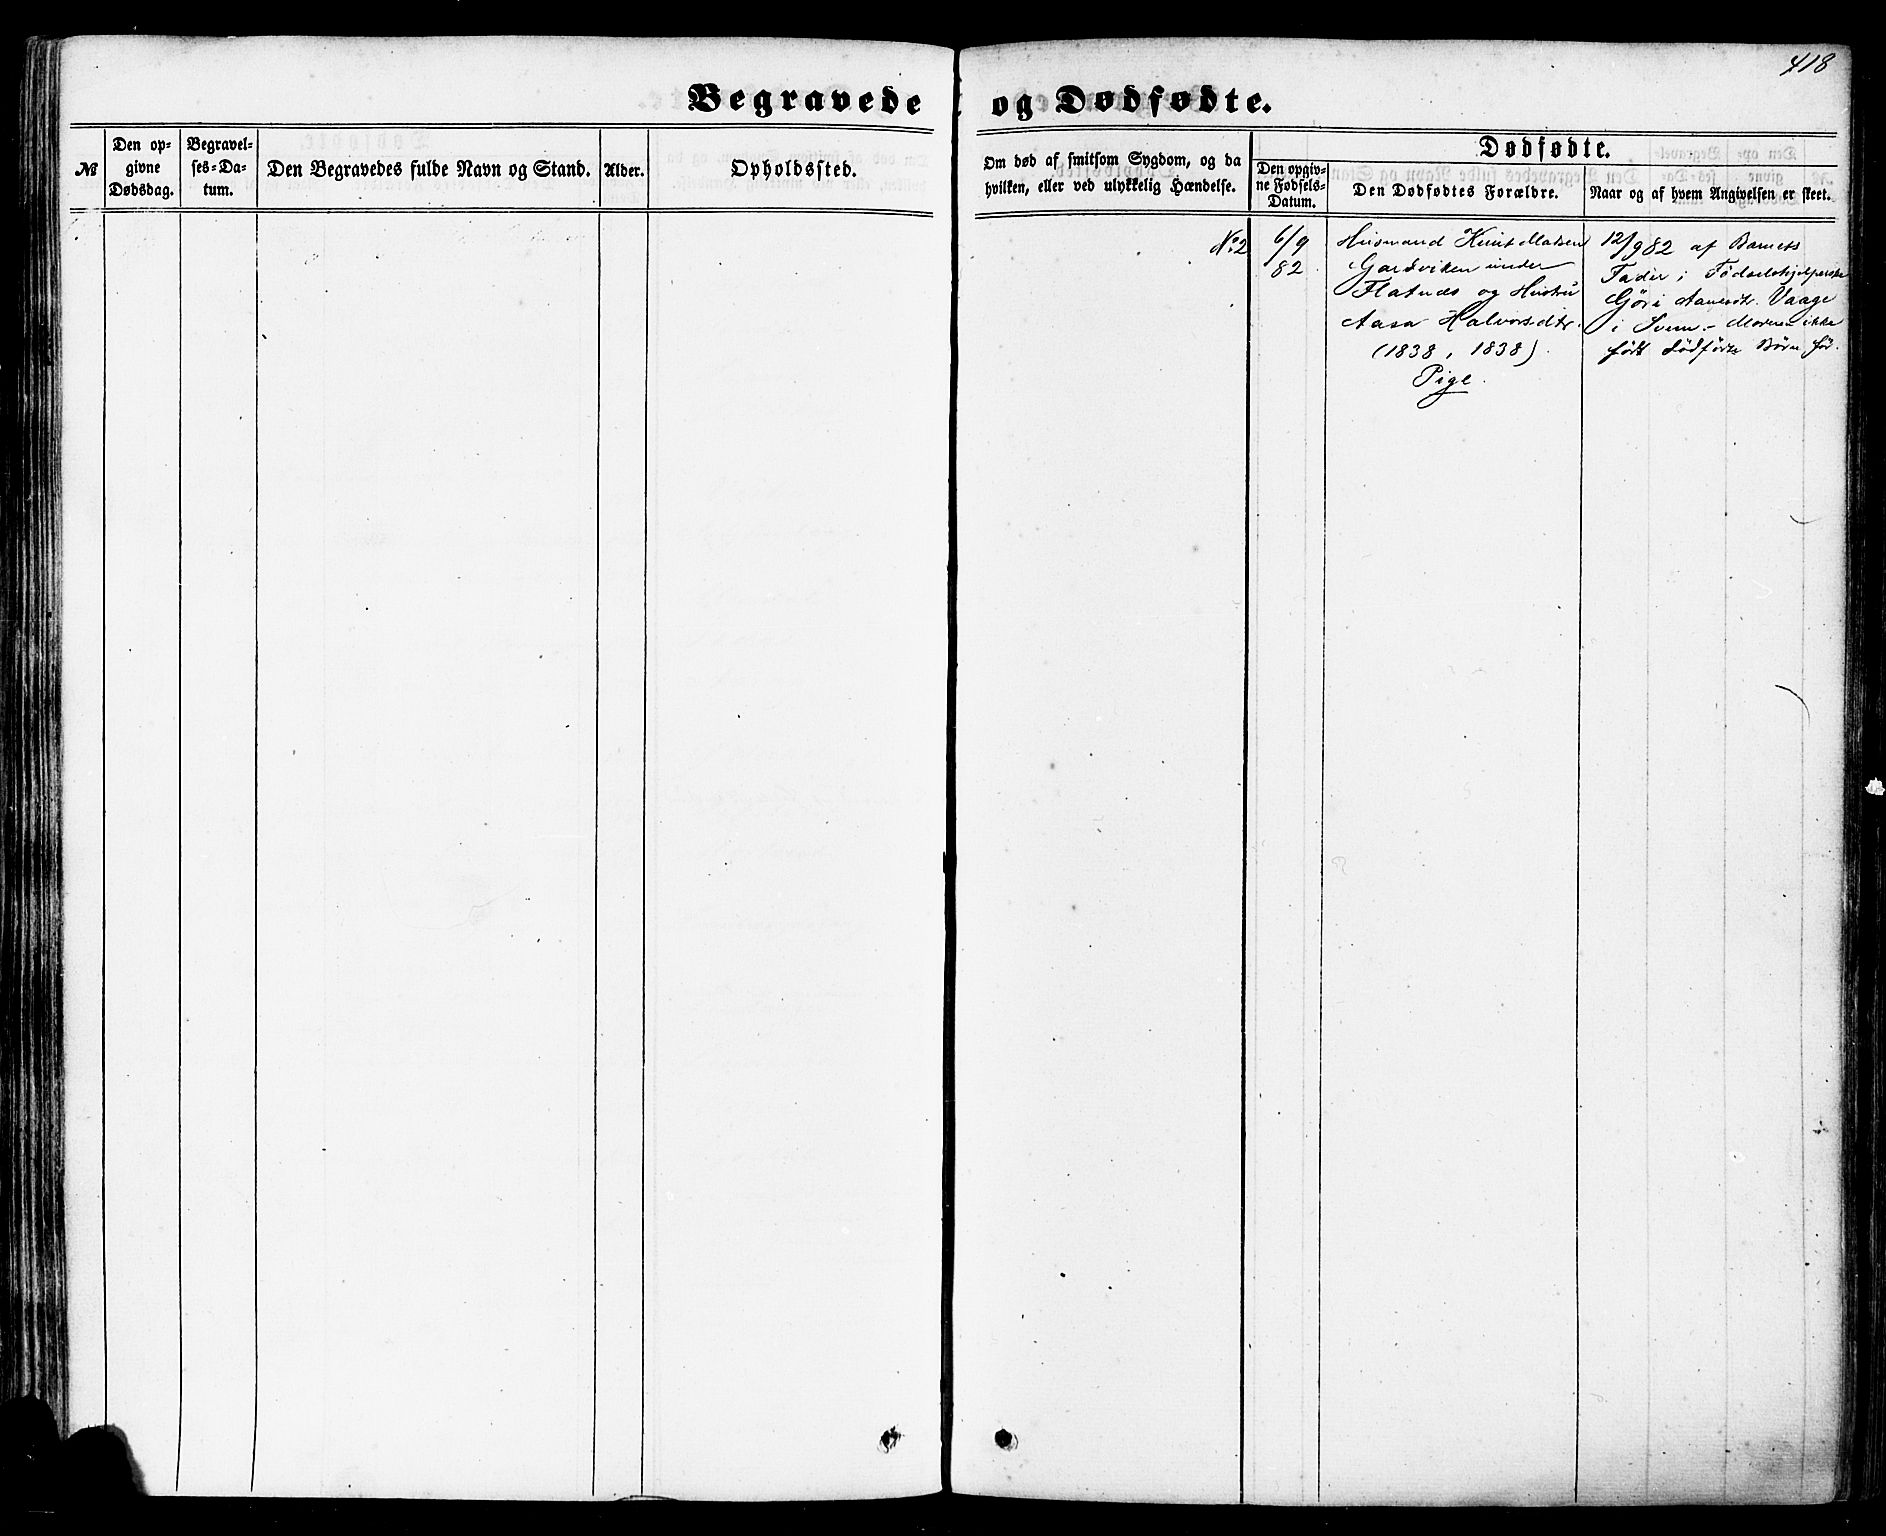 418
Begravede og Dødfødte.
№
Den op-
givne
Dødsdag.
Begravel-
ses-Da-
tum.
Den Begravedes fulde Navn og Stand.
Alder.
Opholdssted.
Om død af smitsom Sygdom, og da
hvilken, eller ved ulykkelig Hændelse.
Dødfødte.
Den opgiv-
ne Fødsels-
Datum.
Den Dødfødtes Forældre.
Naar og af hvem Angivelsen er skeet.
No 2
6/9
82.
Husmand Knut Madsen
Gardviken under
Flatnes og Hustru
Aasa Halvorsdtr.
(1838, 1838).
Pige.
12/9 82 af Barnets
Fader; Fødselshjelperske
Gôri Aanensdtr. Vaage
i Svenn. - Moderen ikke
født dødfødte Børn før.